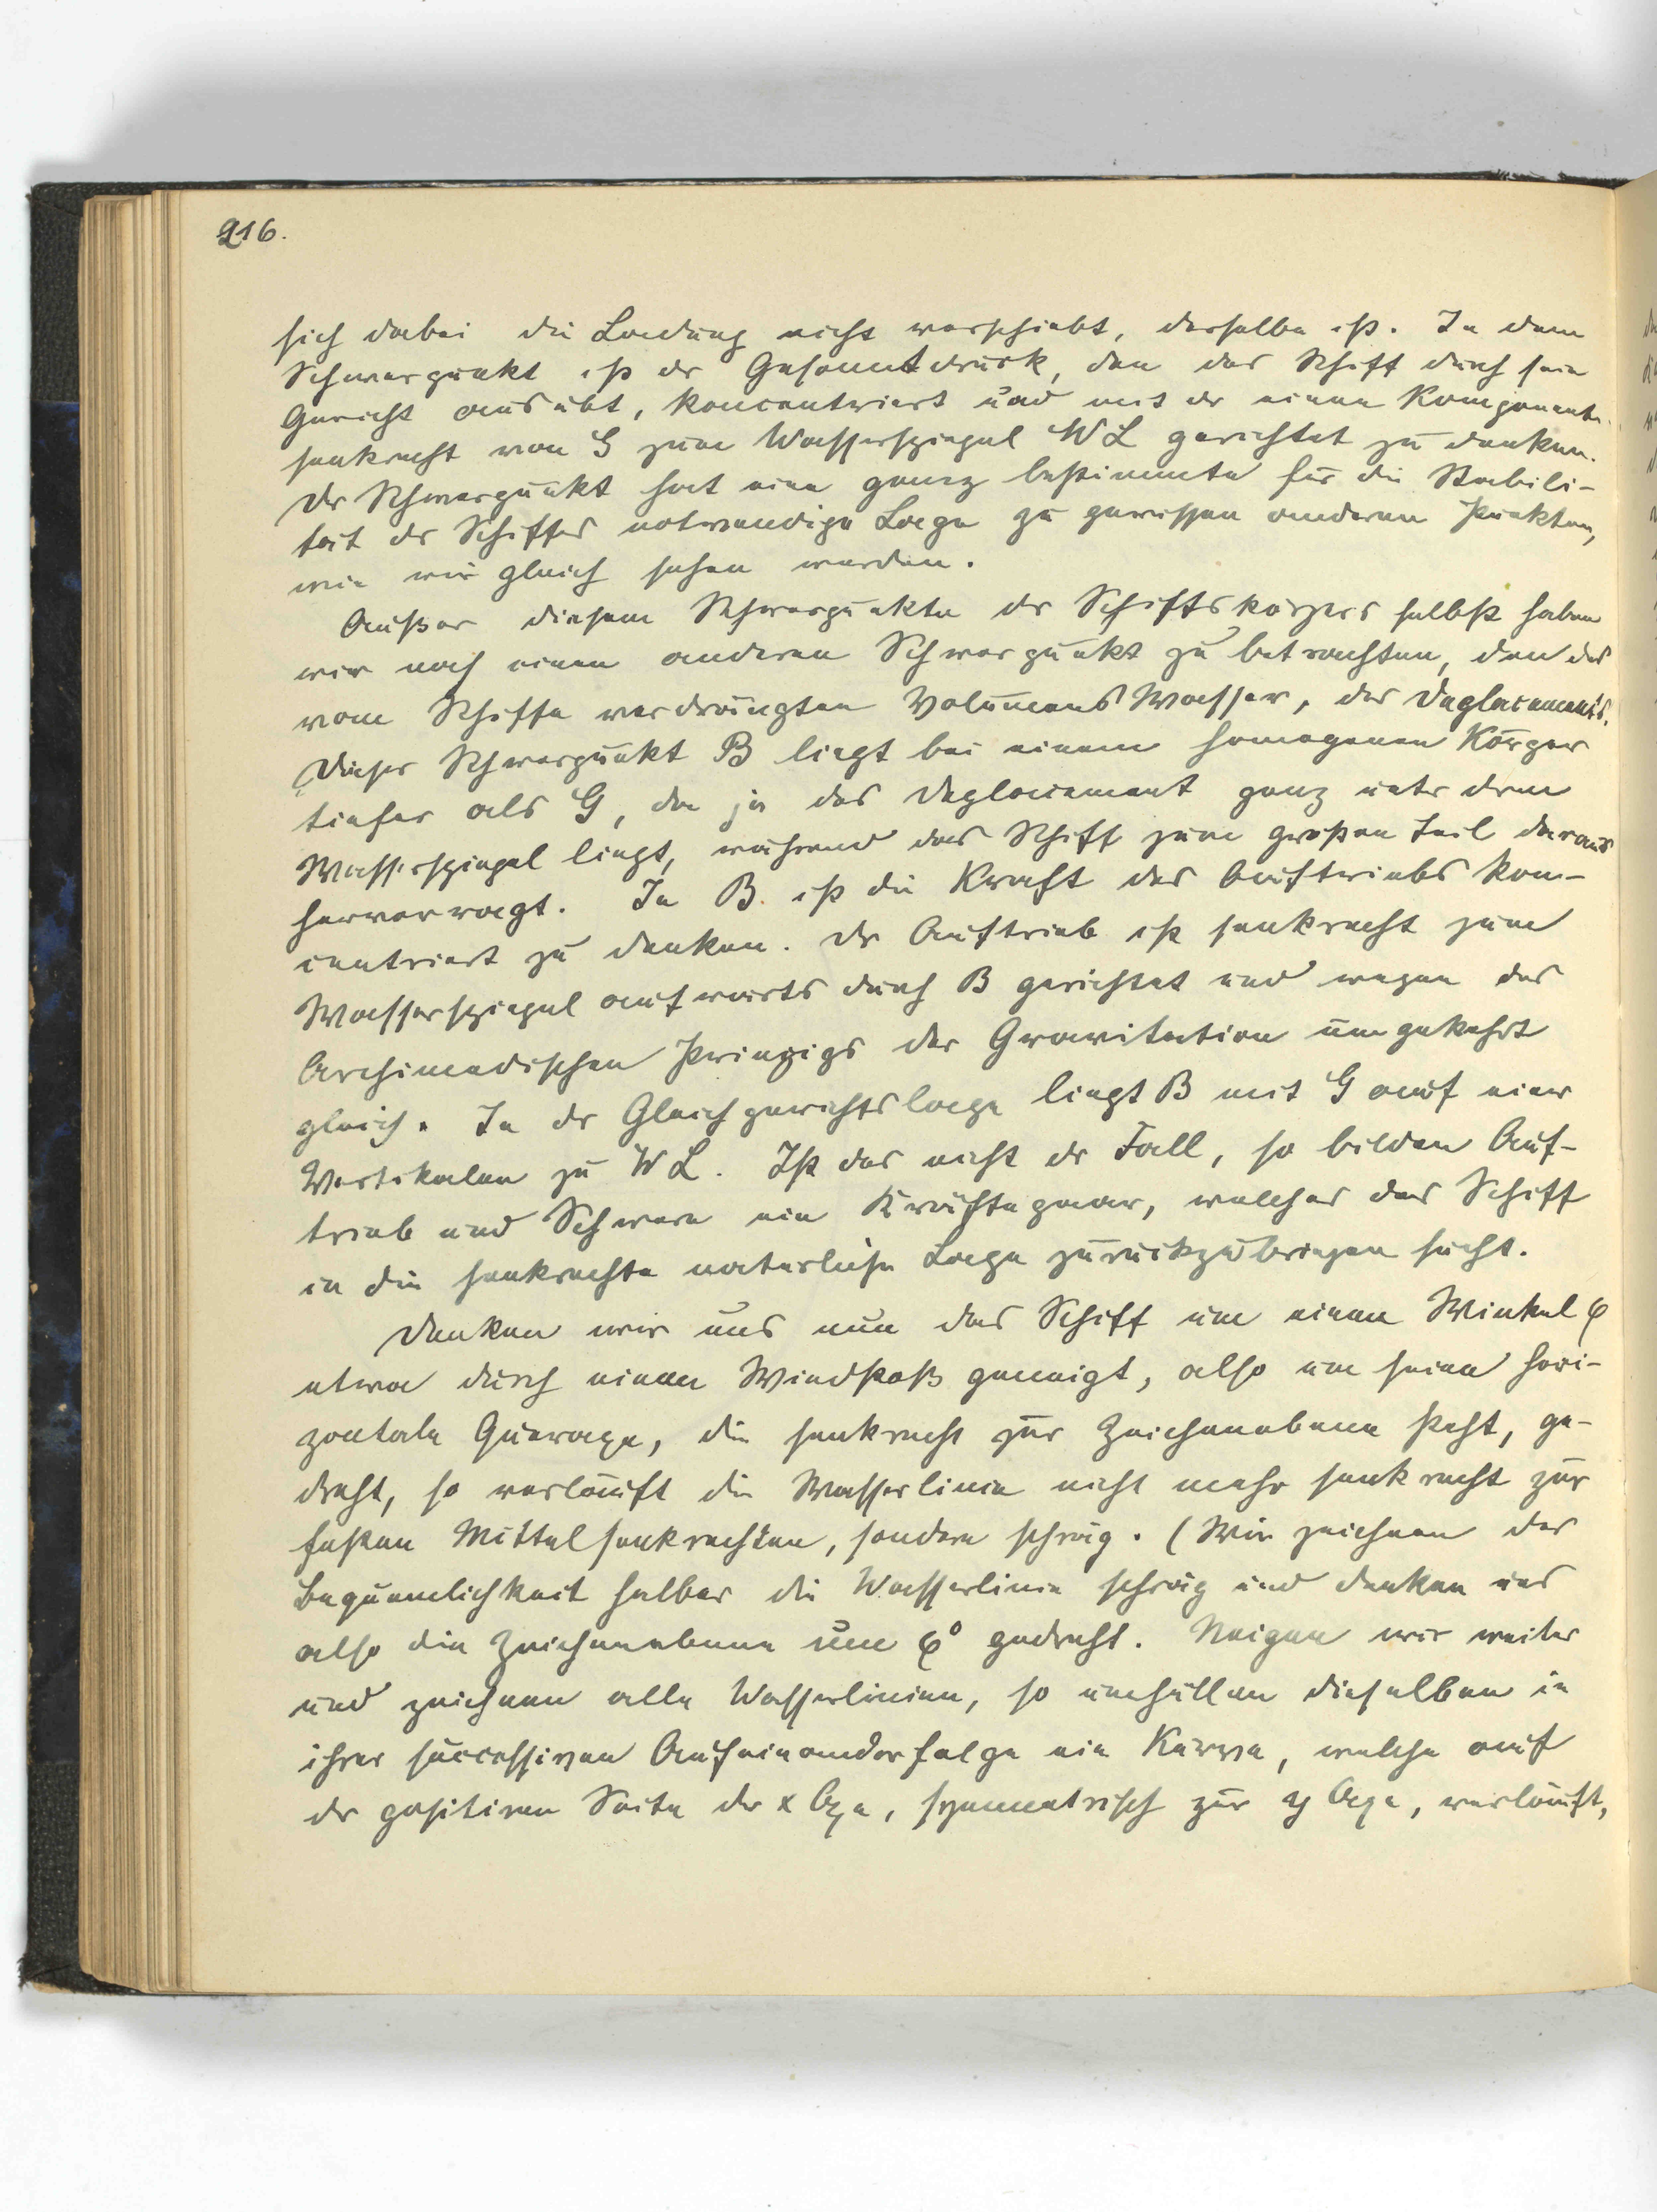 216.
sich dabei die Ladung nicht verschiebt, derselbe ist. In dem
Schwerpunkt ist der Gesamtdruck, den das Schiff durch sein
Gewicht ausübt, koncentriert und mit der einen Komponente
senkrecht von G zum Wasserspiegel WL gerichtet zu denken.
Der Schwerpunkt hat eine ganz bestimmte für die Stabili-
tät des Schiffes notwendige Lage zu gewissen anderen Punkten,
wie wir gleich sehen werden.
Außer diesem Schwerpunkte des Schiffskörpers selbst haben
wir noch einen anderen Schwerpunkt zu betrachten, den des
vom Schiffe verdrängten Volumens Wasser, des Deplacements.
Dieser Schwerpunkt B liegt bei einem homogenen Körper
tiefer als G, da ja das Deplacement ganz unter dem
Wasserspiegel liegt, während das Schiff zum großen Teil daraus
hervorragt. In B ist die Kraft des Auftriebs kon-
centriert zu denken. Der Auftrieb ist senkrecht zum
Wasserspiegel aufwärts durch B gerichtet und wegen des
Archimedischen Prinzips der Gravitation umgekehrt
gleich. In der Gleichgewichtslage liegt B mit G auf einer
Vertikalen zu WL. Ist das nicht der Fall, so bilden Auf-
trieb und Schwere ein Kräftepaar, welches das Schiff
in die senkrechte natürliche Lage zurückzubringen sucht.
Denken wir uns nun das Schiff um einen Winkel φ
etwa durch einen Windstoß geneigt, also um seine hori-
zontale Queraxe, die senkrecht zur Zeichenebene steht, ge-
dreht, so verläuft die Wasserlinie nicht mehr senkrecht zur
festen Mittelsenkrechten, sondern schräg. (Wir zeichnen der
Bequemlichkeit halber die Wasserlinie schräg und denken uns
also die Zeichenebene um φ° gedreht. Neigen wir weiter
und zeichnen alle Wasserlinien, so umhüllen dieselben in
ihrer successiven Aufeinanderfolge eine Kurve, welche auf
der positiven Seite der x Axe, symmetrisch zur y Axe, verläuft,